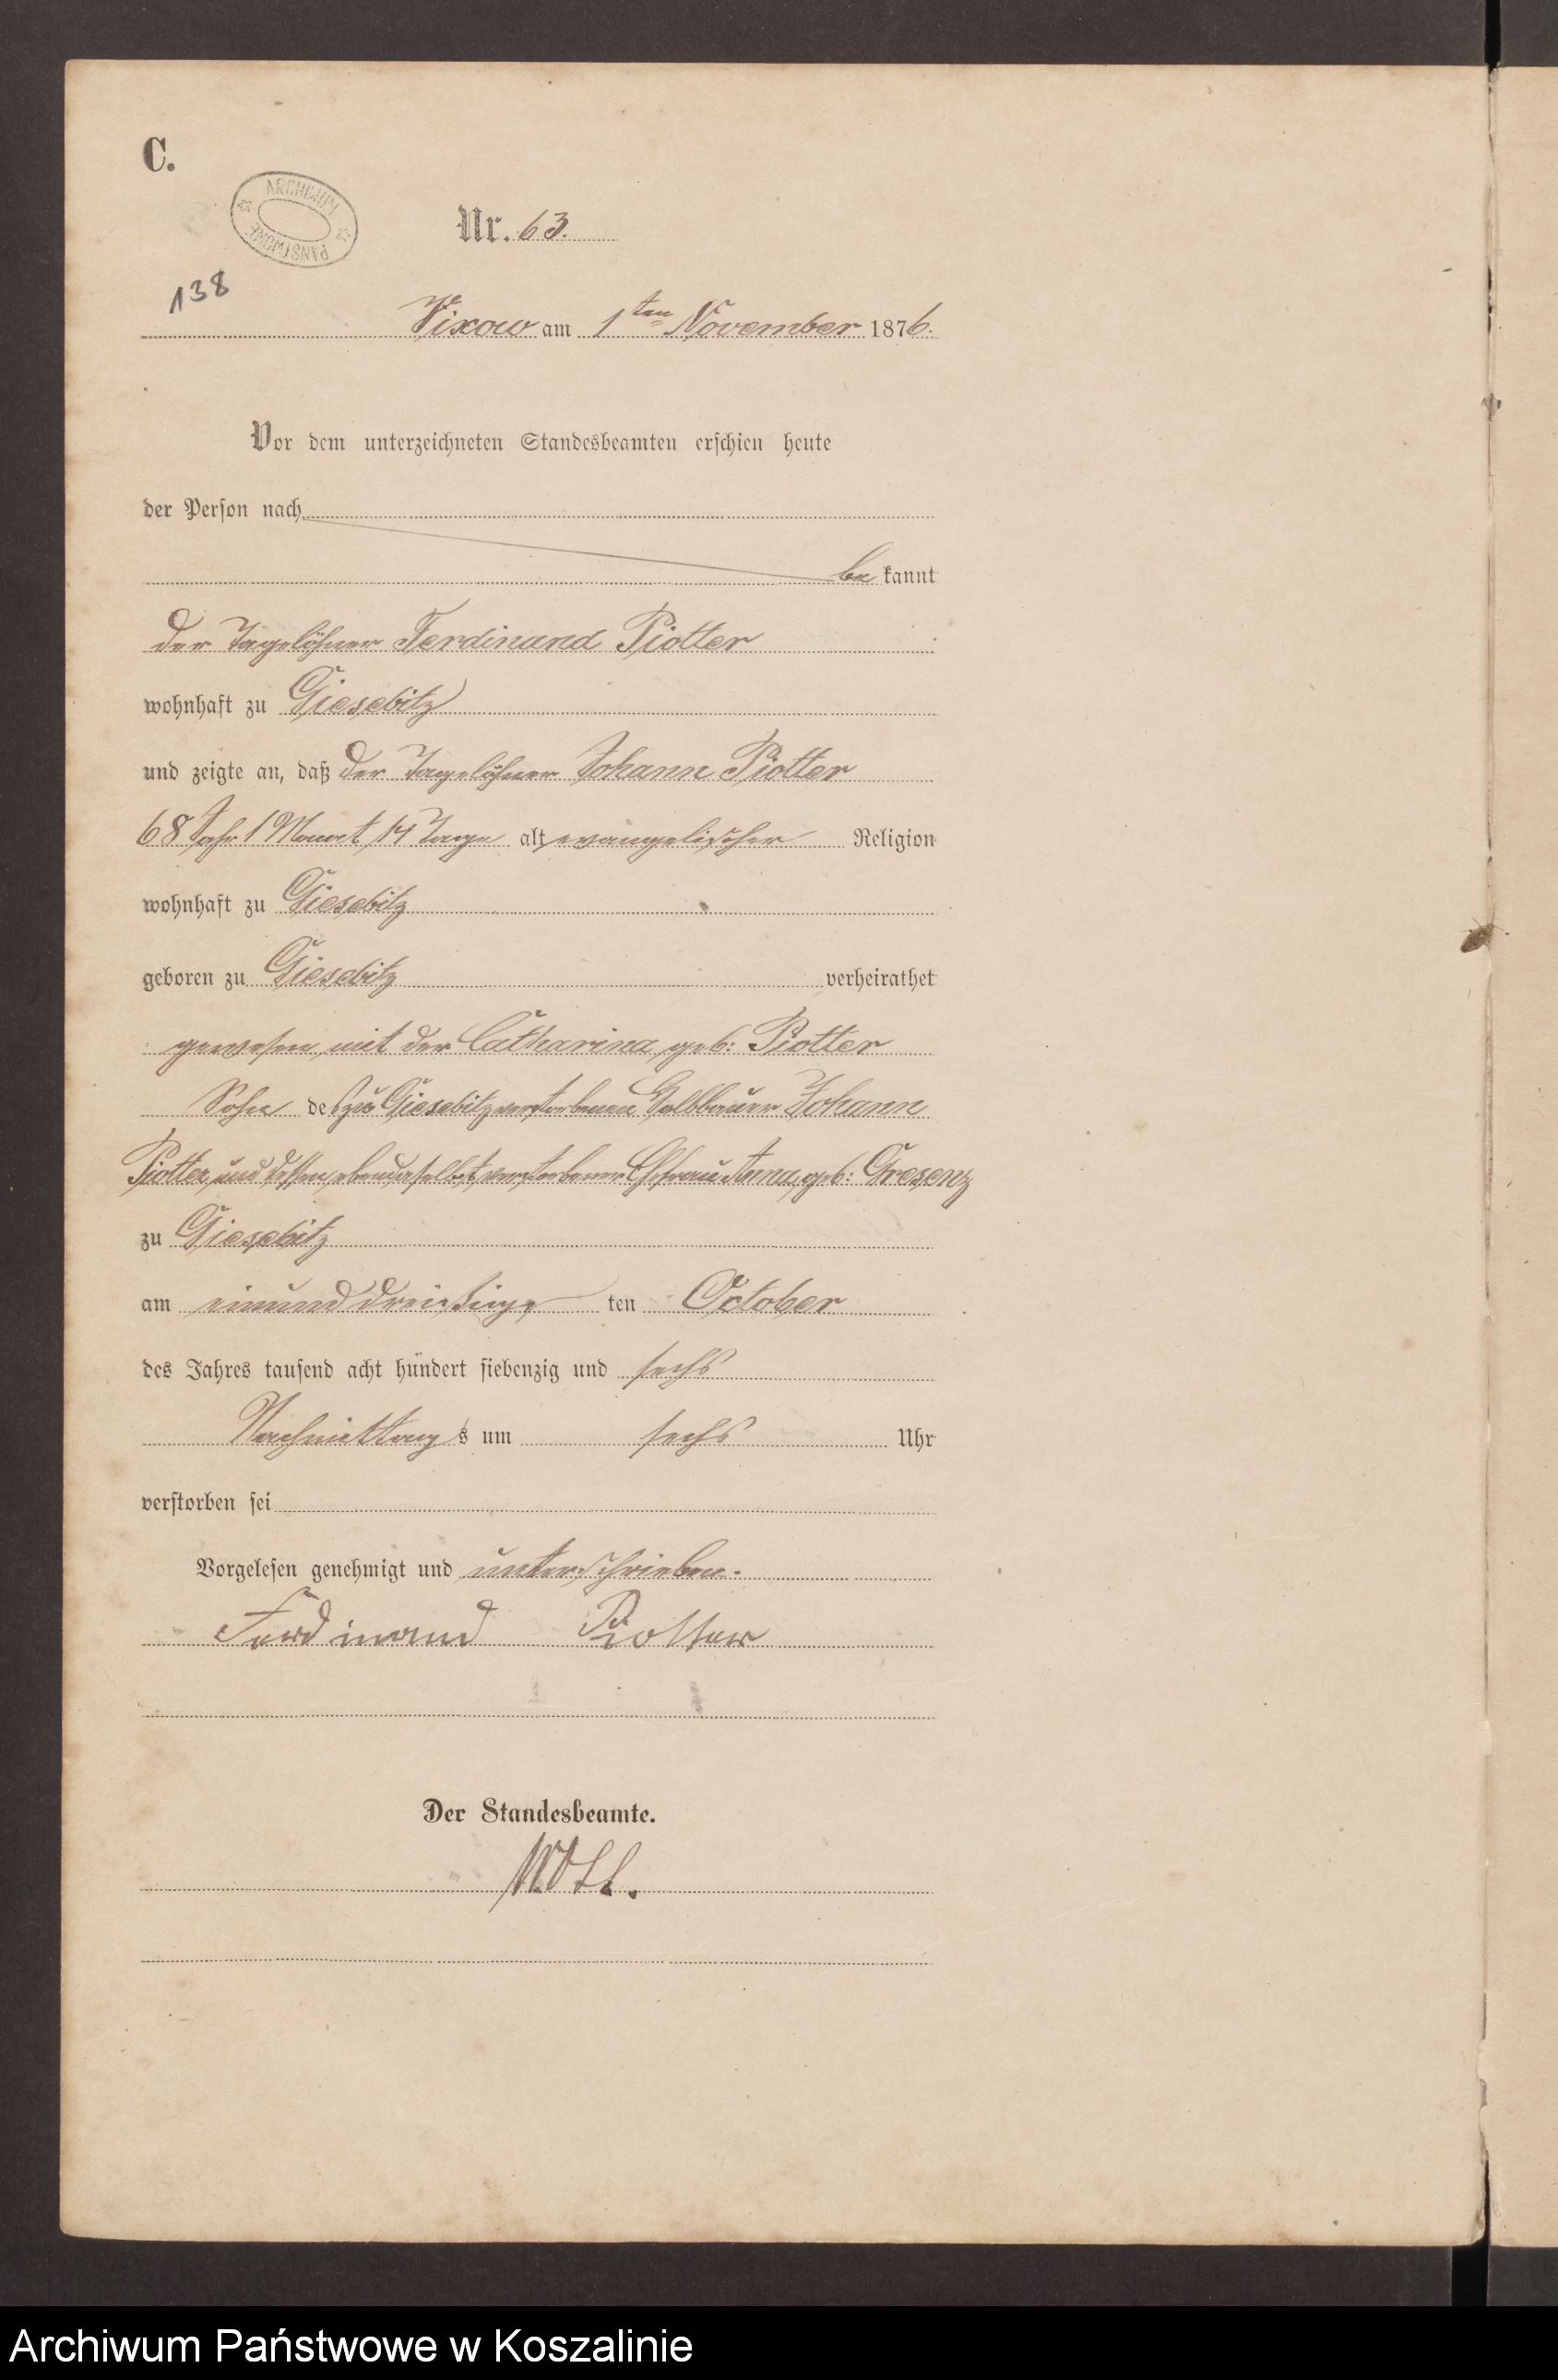 C.
ARCHIWUM PAŃSTWOWE
Nr. 63.
138
Vixow am 1ten November 1876.
Vor dem unterzeichneten Standesbeamten erschien heute
der Person nach
be kannt
der Tagelöhner Ferdinand Piotter
wohnhaft zu Giesebitz
und zeigte an, daß der Tagelöhner Johann Piotter
68 Jahr 1 Monat 14 Tage alt, evangelischer Religion
wohnhaft zu Giesebitz
geboren zu Giesebitz verheirathet
gewesen mit der Catharina, geb: Piotter
Sohn des zu Giesebitz verstorbenen Halbbauer Johann
Piotter und dessen ebendaselbst verstorbener Ehefrau Anna, geb: Gresenz
zu Giesebitz
am einunddreißigs ten October
des Jahres tausend acht hundert siebenzig und sechs
Nachmittags um sechs Uhr
verstorben sei
Vorgelesen genehmigt und unterschrieben.
Ferdinand Piotter
Der Standesbeamte.
Archiwum Państwowe w Koszalinie